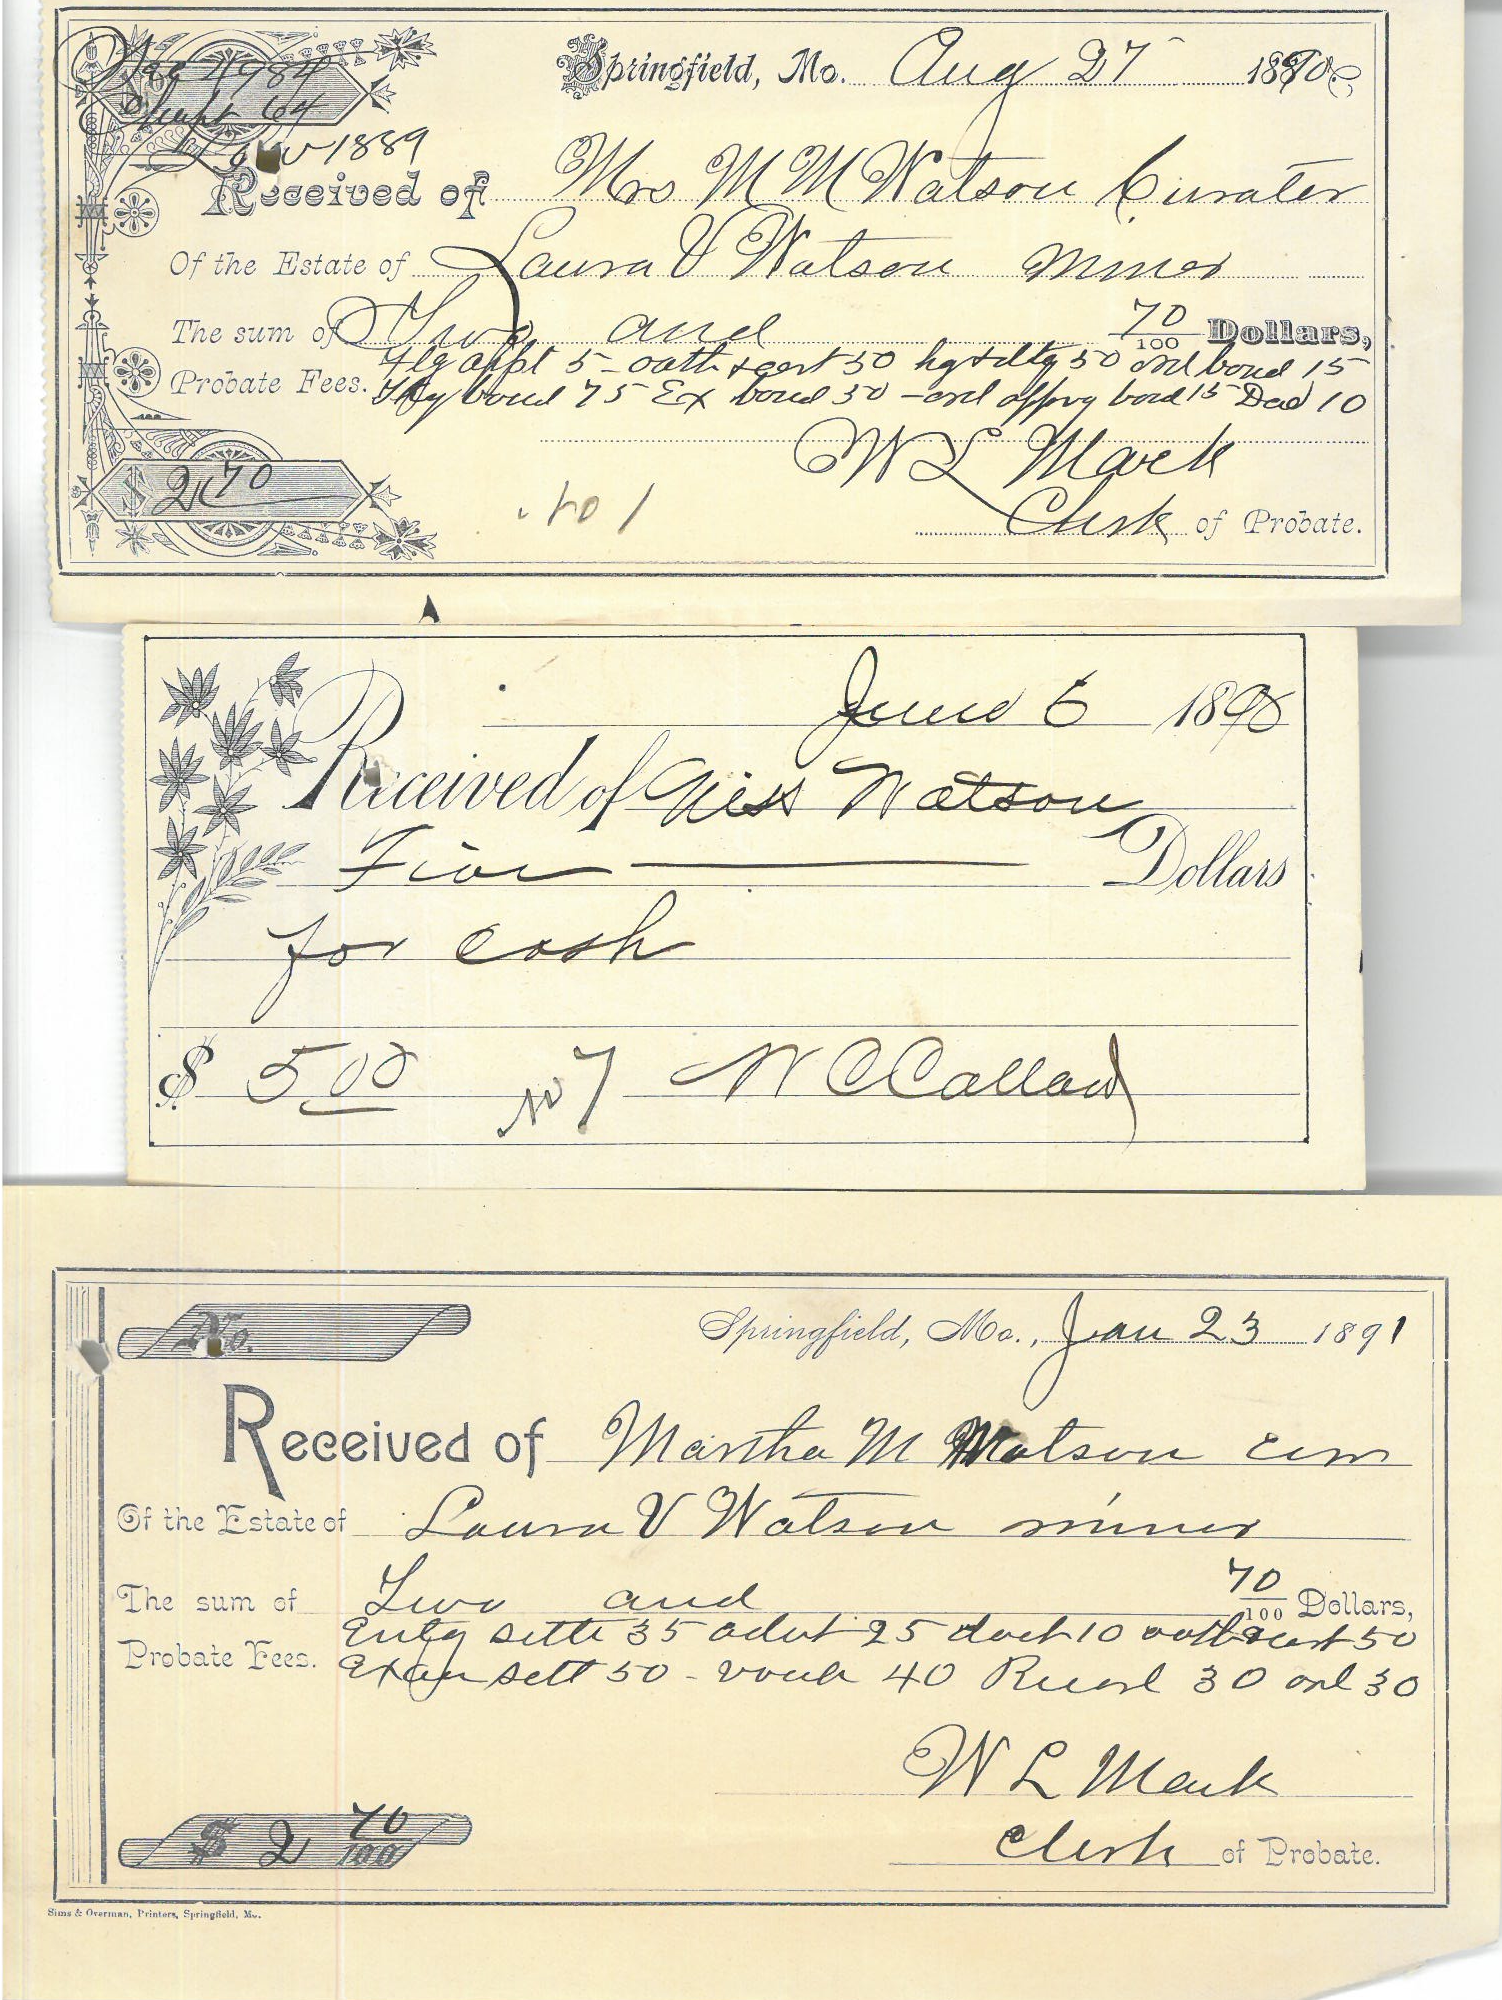 No 4984
Chapt 64
Law 1889
Springfield, Mo. Aug 27 1890
Received of Mrs M M Watson Curater
Of the Estate of Laura V Watson minor
The sum of Two and 70/100 Dollars,
Flg appt 5 - oath & cert 50 hg & dtg 50 ord bond 15
Probate Fees. bond 75 Ex bond 50 - ord apprvg bond 15 Ded 10
W L Mack
$ 2 70
No 1
Clerk of Probate.
June 6 1890
Received of Miss Watson
Five Dollars
for cash
$ 5 00 No 7 W C Calland
No.
Springfield, Mo., Jan 23 1891
Received of Martha M Watson cur
Of the Estate of Laura V Watson minor
The sum of Two and 70/100 Dollars,
Entg settl 35 advt 25 dock 10 oath & cert 50
Probate Fees. Exam sett 50 - vouch 40 Record 30 ord 30
W L Mack
$ 2 70/100
Clerk of Probate.
Sims & Overman, Printers, Springfield, Mo.